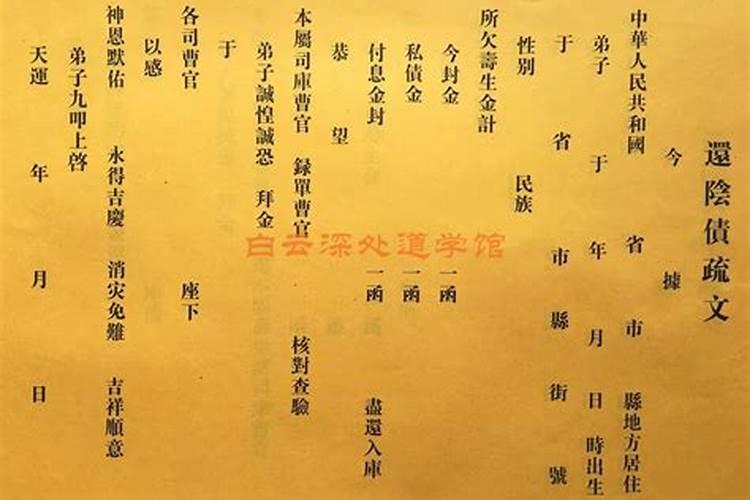 還陰債疏文
今據
中華人民共和國 省 市 縣地方居住
弟子 于 年 月 日 時出生
于 省 市 縣 街 號
性別 民族
所欠壽生金計
今封金 一函
私債金 一函
付息金封 一函 盡還入庫
恭望
本屬司庫曹官 録單曹官 核對查驗
弟子誠惶誠恐 拜金
于
各司曹官 座下
以感
神恩默佑 永得吉慶 消灾免難 吉祥順意
弟子九叩上啓
天運 年 月 日
白云深处道学馆